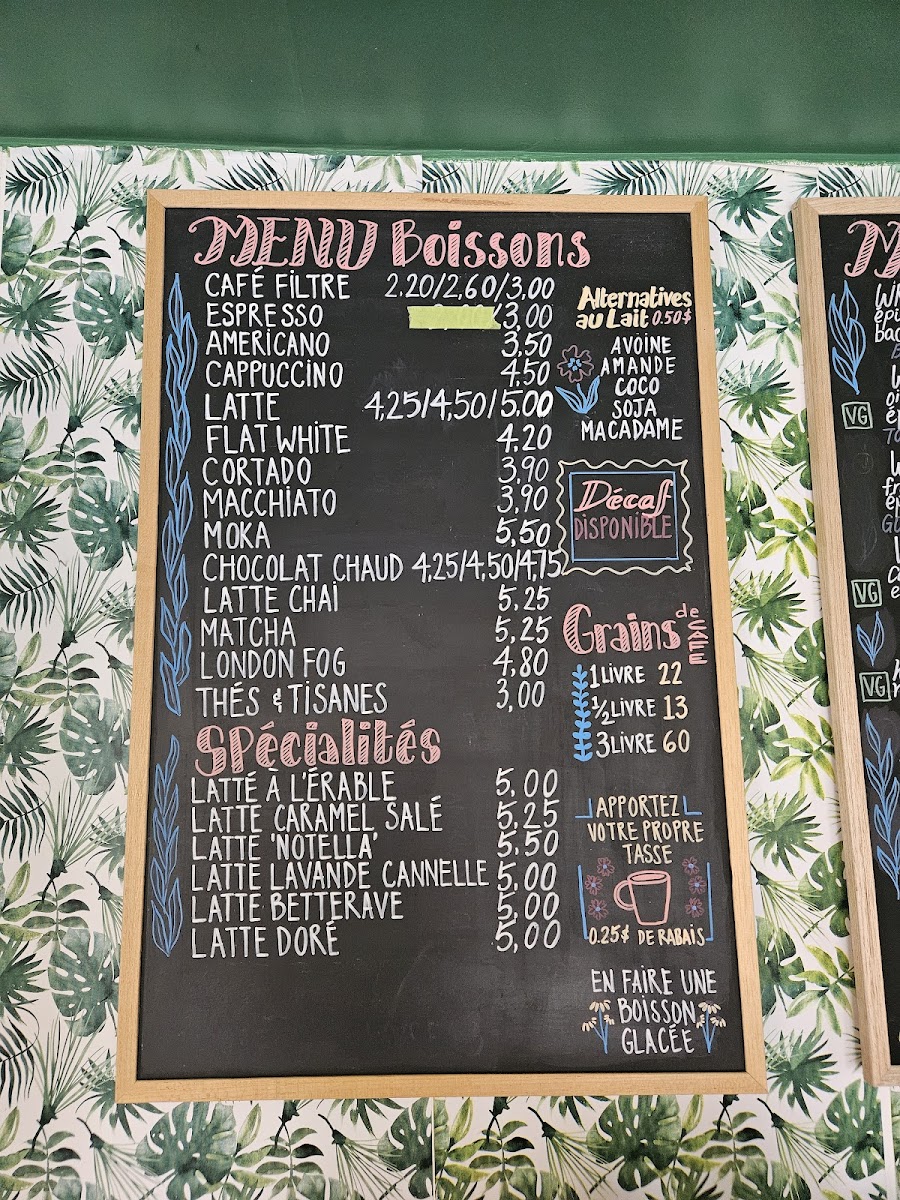 MENU Boissons
CAFÉ FILTRE 2.20/2,60/3,00
ESPRESSO 3,00
AMERICANO 3,50
CAPPUCCINO 4,50
LATTE 4,25/4,50/5,00
FLAT WHITE 4,20
CORTADO 3,90
MACCHIATO 3,90
MOKA 5,50
CHOCOLAT CHAUD 4,25/4,50/4,75
LATTE CHAI 5,25
MATCHA 5,25
LONDON FOG 4,80
THÉS & TISANES 3,00
Spécialités
LATTÉ À L'ÉRABLE 5,00
LATTE CARAMEL SALÉ 5,25
LATTE 'NOTELLA' 5,50
LATTE LAVANDE CANNELLE 5,00
LATTE BETTERAVE 5,00
LATTE DORÉ 5,00
Alternatives
au Lait 0.50$
AVOINE
AMANDE
COCO
SOJA
MACADAME
Décaf
DISPONIBLE
Grains de
1 LIVRE 22
½ LIVRE 13
3 LIVRE 60
APPORTEZ
VOTRE PROPRE
TASSE
0.25$ DE RABAIS
EN FAIRE UNE
BOISSON
GLACÉE
VG
VG
VG